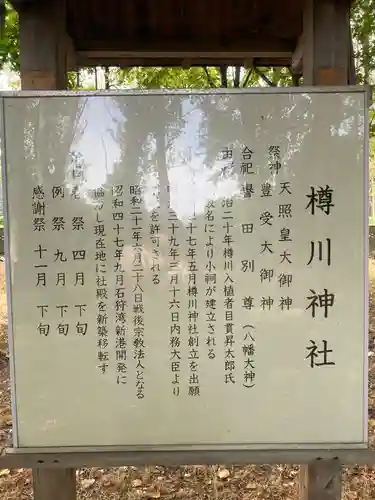 樽川神社
祭神 天照皇大御神
豊受大御神
合祀 誉田別尊（八幡大神）
由
治二十年樽川入植者目貫昇太郎氏
数名により小祠が建立される
十七年五月樽川神社創立を出願
三十九年三月十六日内務大臣より
を許可される
昭和二十一年六月二十八日戦後宗教法人となる
昭和四十七年九月石狩湾新港開発に
協力し現在地に社殿を新築移転す
祭 四月 下旬
例祭 九月 下旬
感謝祭 十一月 下旬